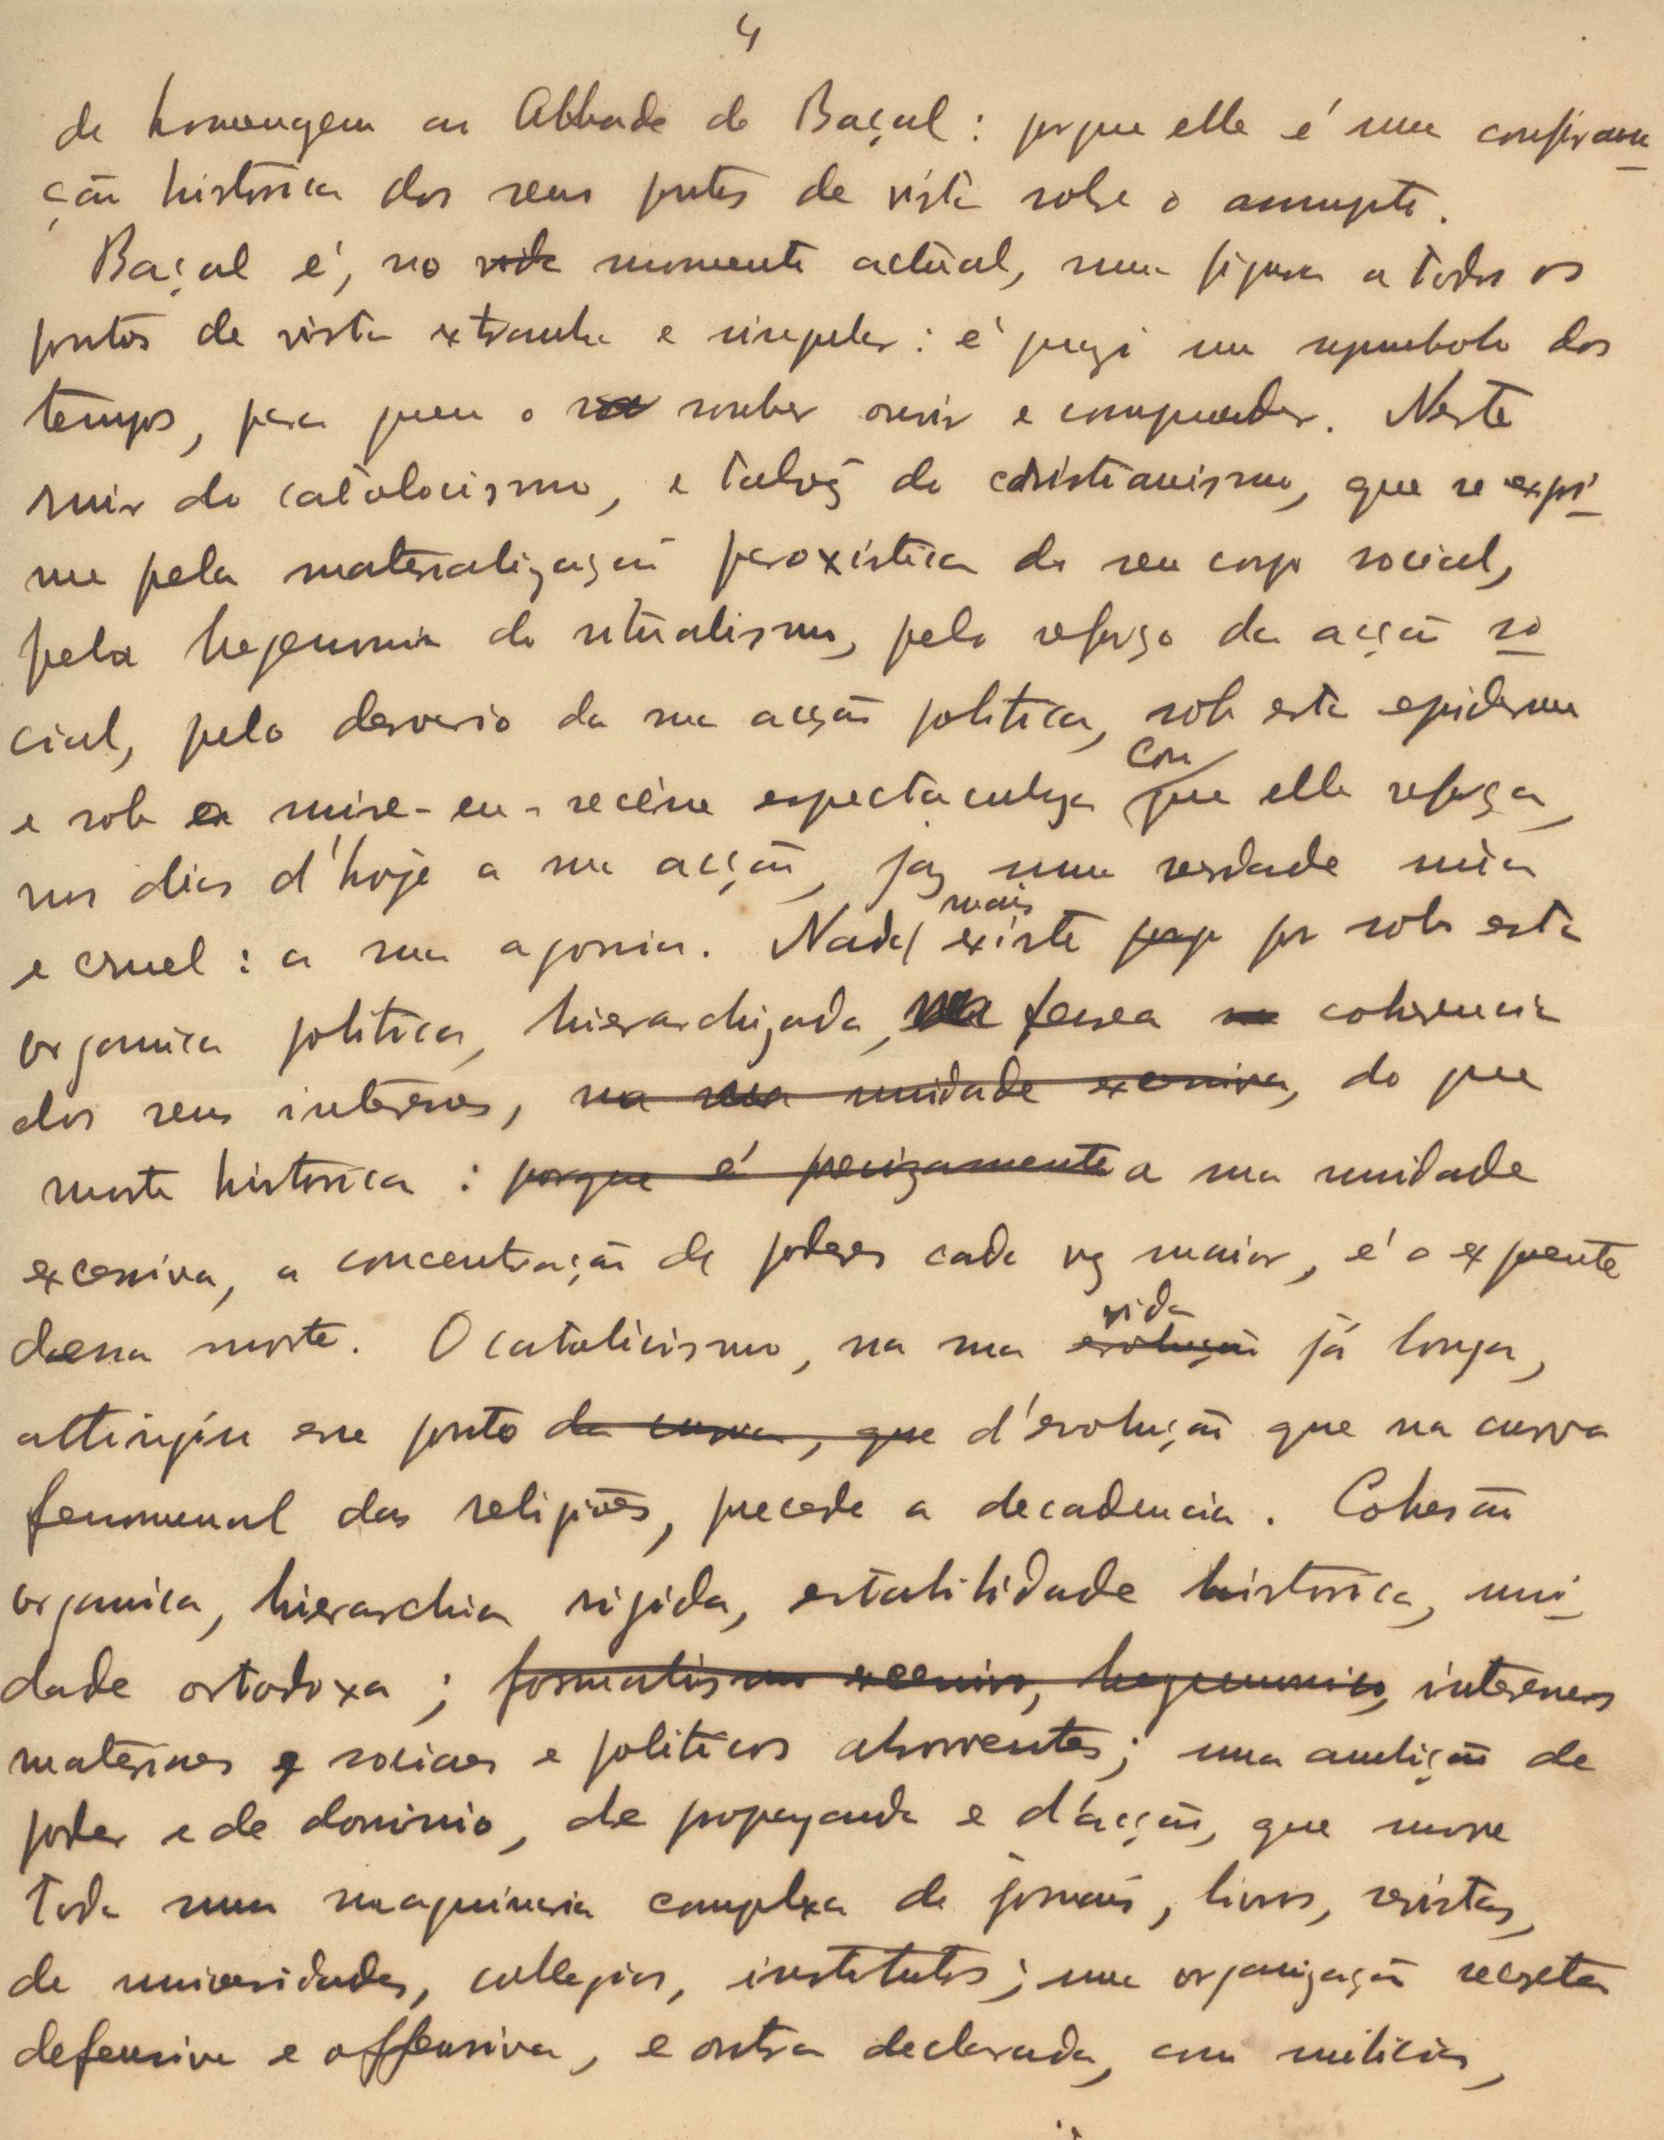 4
de homenagem ao Abbade de Baçal: porque elle é uma confirma
ção historica dos seus pontos de vista sobre o assumpto.
Baçal é, no vida momento actual, uma figura a todos os
pontos de vista extranha e singular: é quasi um symbolo dos
tempos, para quem o souber ouvir e comprehender. Neste
ruir do catolocismo, e talvez do christianismo, que se expri
me pela materialização paroxistica do seu corpo social,
pela hegemonia do ritualismo, pelo reforço da acção so
cial, pelo desvario da sua acção politica, sob esta epiderme
e sob a mise-en-scène espectaculosa com que elle reforça,
nos dias d'hoje a sua acção, jaz uma verdade núa
e cruel: a sua agonia. Nada mais existe por sob esta
organica politica, hierarchizada, ferrea coherencia
dos seus interesses, na sua unidade excessiva, do que
morte historica: porque é precizamente a sua unidade
excessiva, a concentração de poderes cada vez maior, é o expoente
dessa morte. O catolicismo, na sua evolução vida já longa,
attingiu esse ponto da curva, que d'evolução que na curva
fenomenal das religiões, precede a decadencia. Cohesão
organica, hierarchia rigida, estabilidade historica, uni
dade ortodoxa; formalismo excessivo, hegemonico, interesses
materiaes e sociaes e politicos absorventes; uma ambição de
poder e de dominio, de propaganda e d'acção, que move
toda uma maquinaria complexa de jornais, livros, revistas,
de universidades, collegios, institutos; uma organização secreta
defensiva e offensiva, e outra declarada, com milicias,